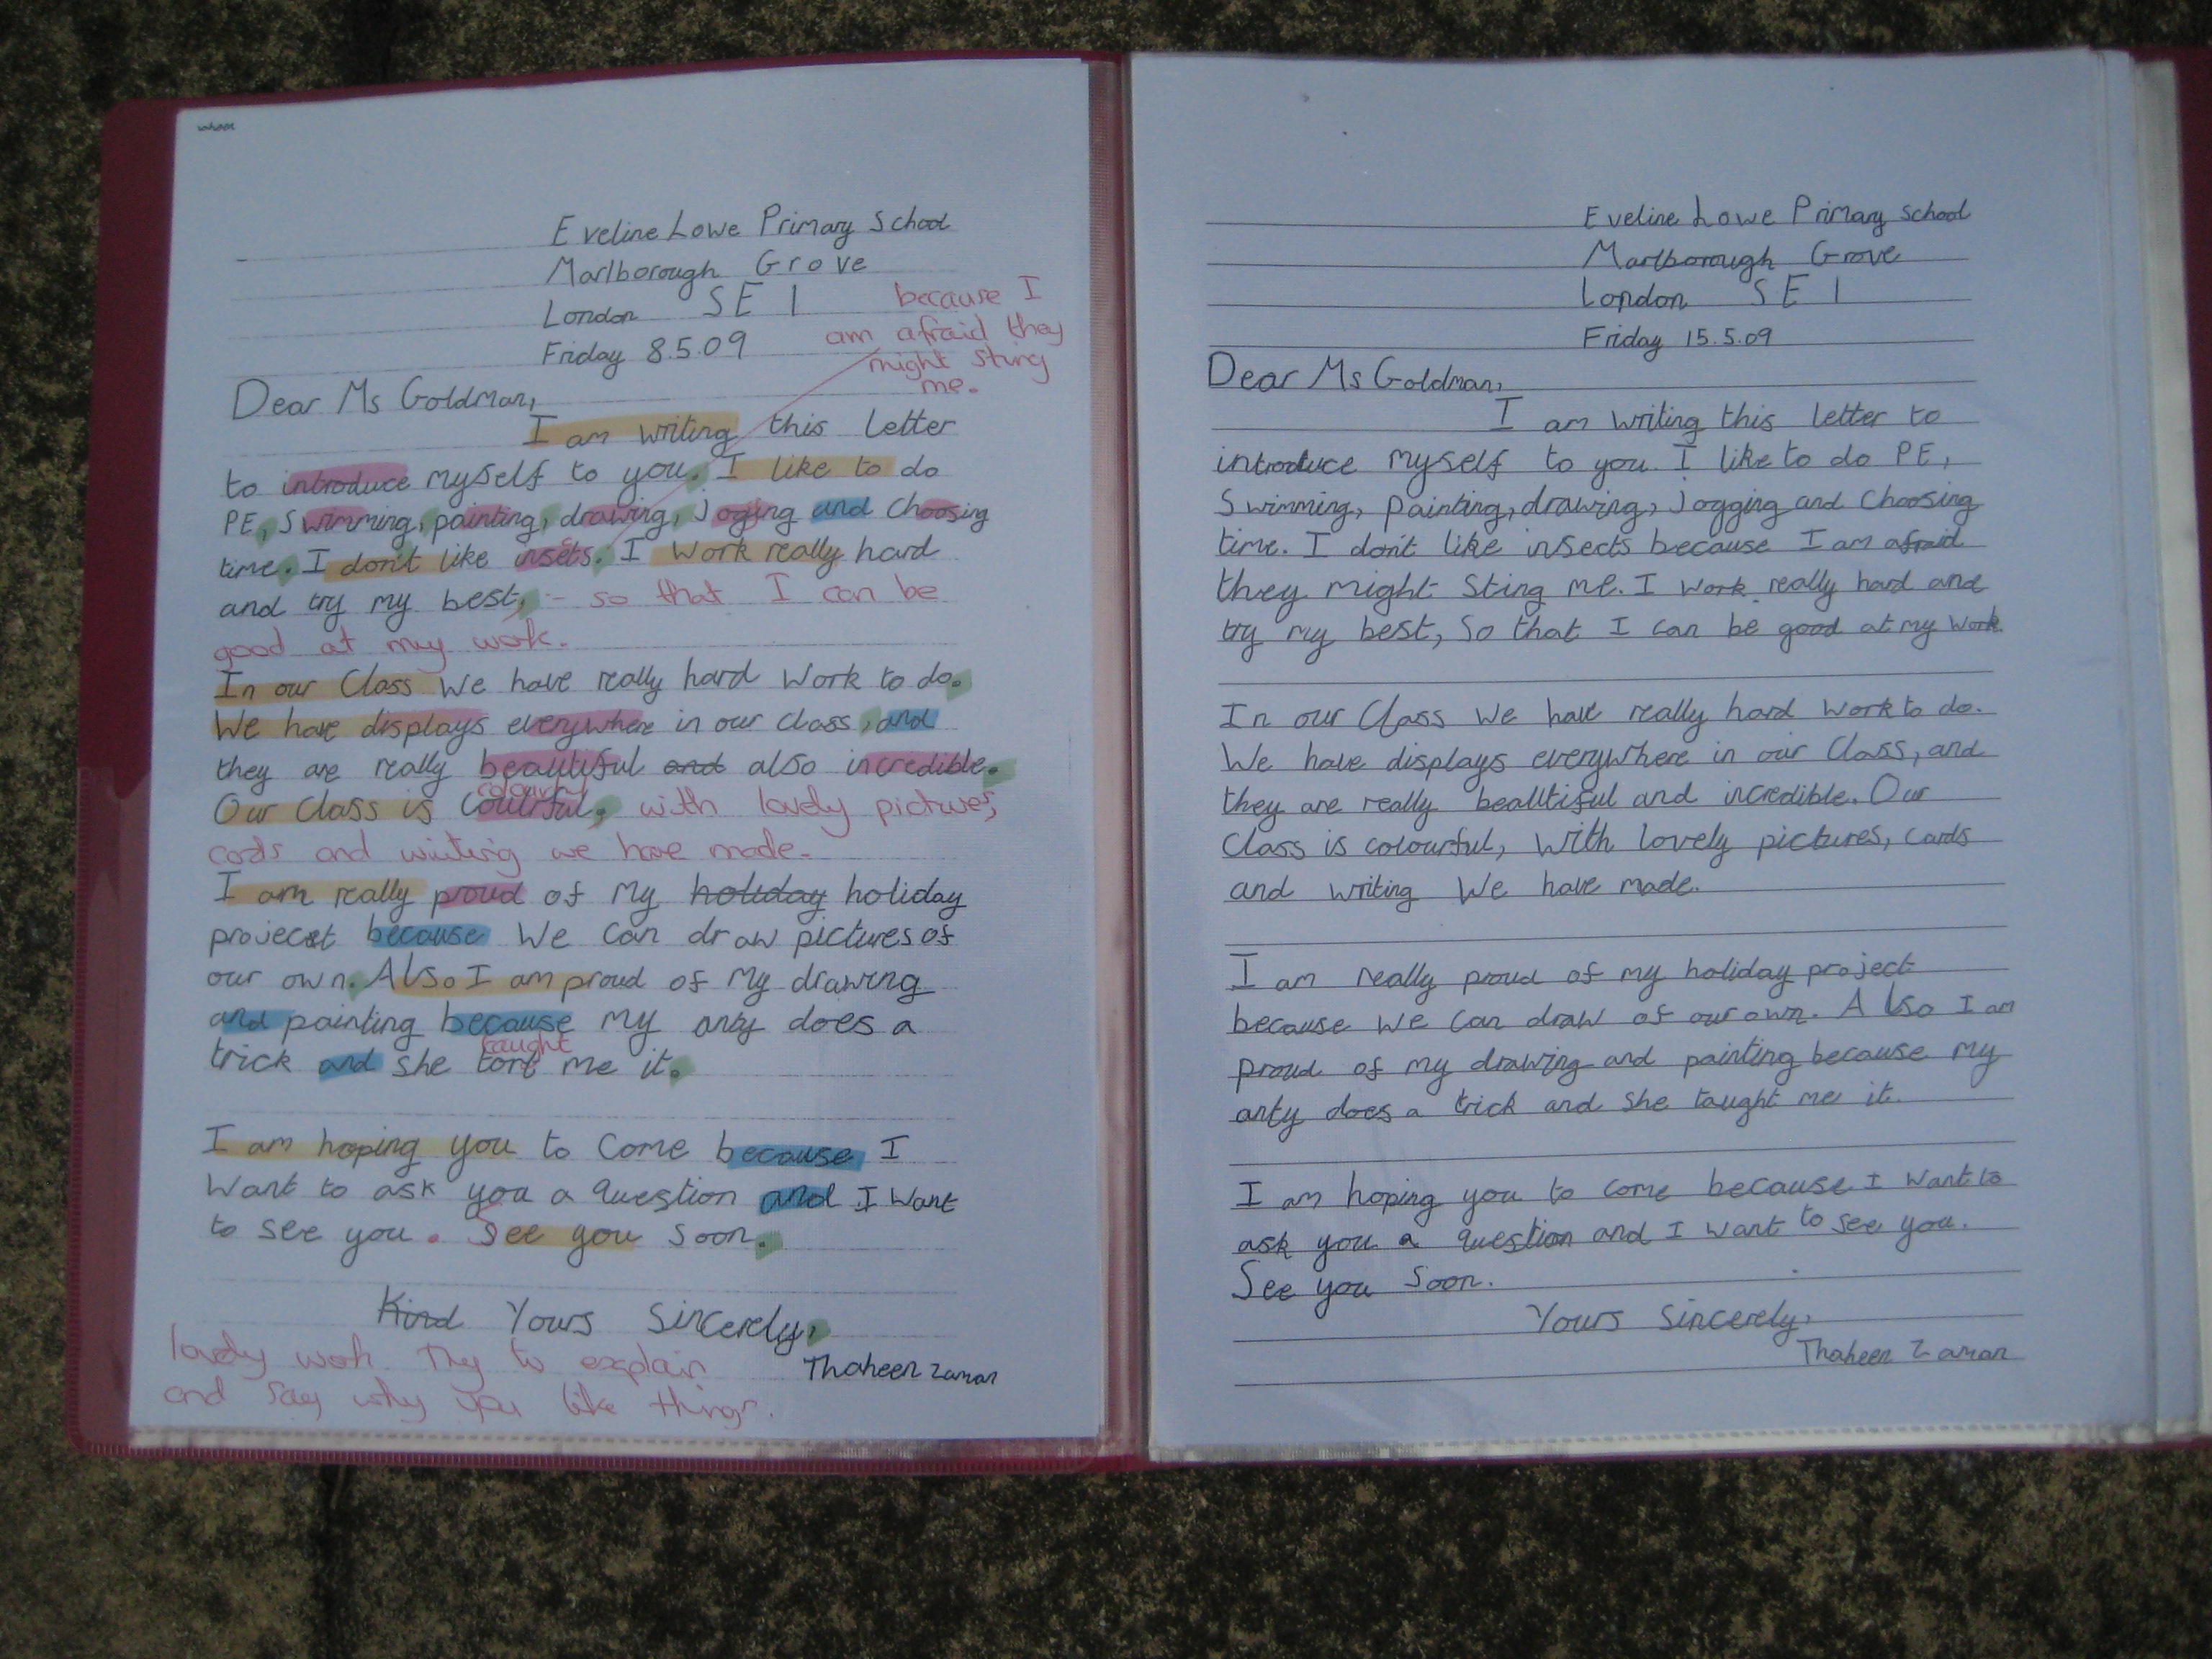 Eveline Lowe Primary School
Marlborough Grove
London SE 1
Friday 8.5.09
because I
am afraid they
might sting
me.
Dear Ms Goldman,
I am writing this letter
to introduce myself to you. I like to do
PE, Swimming, painting, drawing, joging and choosing
time. I don't like insets. I work really hard
and try my best, - so that I can be
good at my work.
In our Class we have really hard work to do.
We have displays everywhere in our class, and
they are really beautiful and also incredible.
colourful
Our Class is coulrful, with lovely pictures,
cards and writing we have made.
I am really proud of my holiday holiday
project because we can draw pictures of
our own. Also I am proud of my drawing
and painting because my anty does a
taught
trick and she tort me it.
I am hoping you to come because I
want to ask you a question and I want
to see you. See you soon.
Kind Yours Sincerely,
Thaheen Zaman
lovely work. Try to explain
and say why you like things.
Eveline Lowe Primary School
Marlborough Grove
London SE 1
Friday 15.5.09
Dear Ms Goldman,
I am writing this letter to
introduce myself to you. I like to do PE,
Swimming, painting, drawing, jogging and choosing
time. I don't like insects because I am afraid
they might sting me. I work really hard and
try my best, so that I can be good at my work.
In our Class we have really hard work to do.
We have displays everywhere in our class, and
they are really beautiful and incredible. Our
class is colourful, with lovely pictures, cards
and writing we have made.
I am really proud of my holiday project
because we can draw of our own. Also I am
proud of my drawing and painting because my
anty does a trick and she taught me it.
I am hoping you to come because I want to
ask you a question and I want to see you.
See you soon.
Yours Sincerely,
Thaheen Zaman